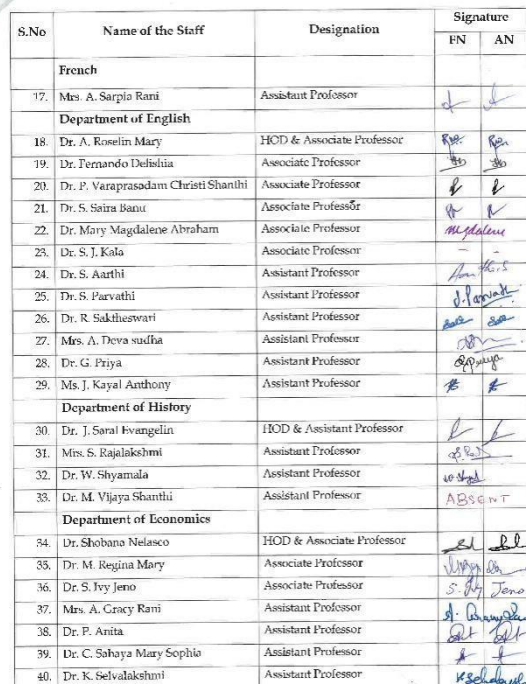 S.No Name of the Staff Designation Signature
FN AN
French
17. Mrs. A. Sarpia Rani Assistant Professor
Department of English
18. Dr. A. Roselin Mary HOD & Associate Professor
19. Dr. Fernando Delishia Associate Professor
20. Dr. P. Varaprasadam Christi Shanthi Associate Professor
21. Dr. S. Saira Banu Associate Professor
22. Dr. Mary Magdalene Abraham Associate Professor Magdalene
23. Dr. S. J. Kala Associate Professor - -
24. Dr. S. Aarthi Assistant Professor
25. Dr. S. Parvathi Assistant Professor
26. Dr. R. Saktheswari Assistant Professor
27. Mrs. A. Deva sudha Assistant Professor
28. Dr. G. Priya Assistant Professor
29. Ms. J. Kayal Anthony Assistant Professor
Department of History
30. Dr. J. Saral Evangelin HOD & Assistant Professor
31. Mrs. S. Rajalakshmi Assistant Professor
32. Dr. W. Shyamala Assistant Professor
33. Dr. M. Vijaya Shanthi Assistant Professor ABSENT
Department of Economics
34. Dr. Shobana Nelasco HOD & Associate Professor
35. Dr. M. Regina Mary Associate Professor
36. Dr. S. Ivy Jeno Associate Professor S. Ivy Jeno
37. Mrs. A. Gracy Rani Assistant Professor
38. Dr. P. Anita Assistant Professor
39. Dr. C. Sahaya Mary Sophia Assistant Professor
40. Dr. K. Selvalakshmi Assistant Professor